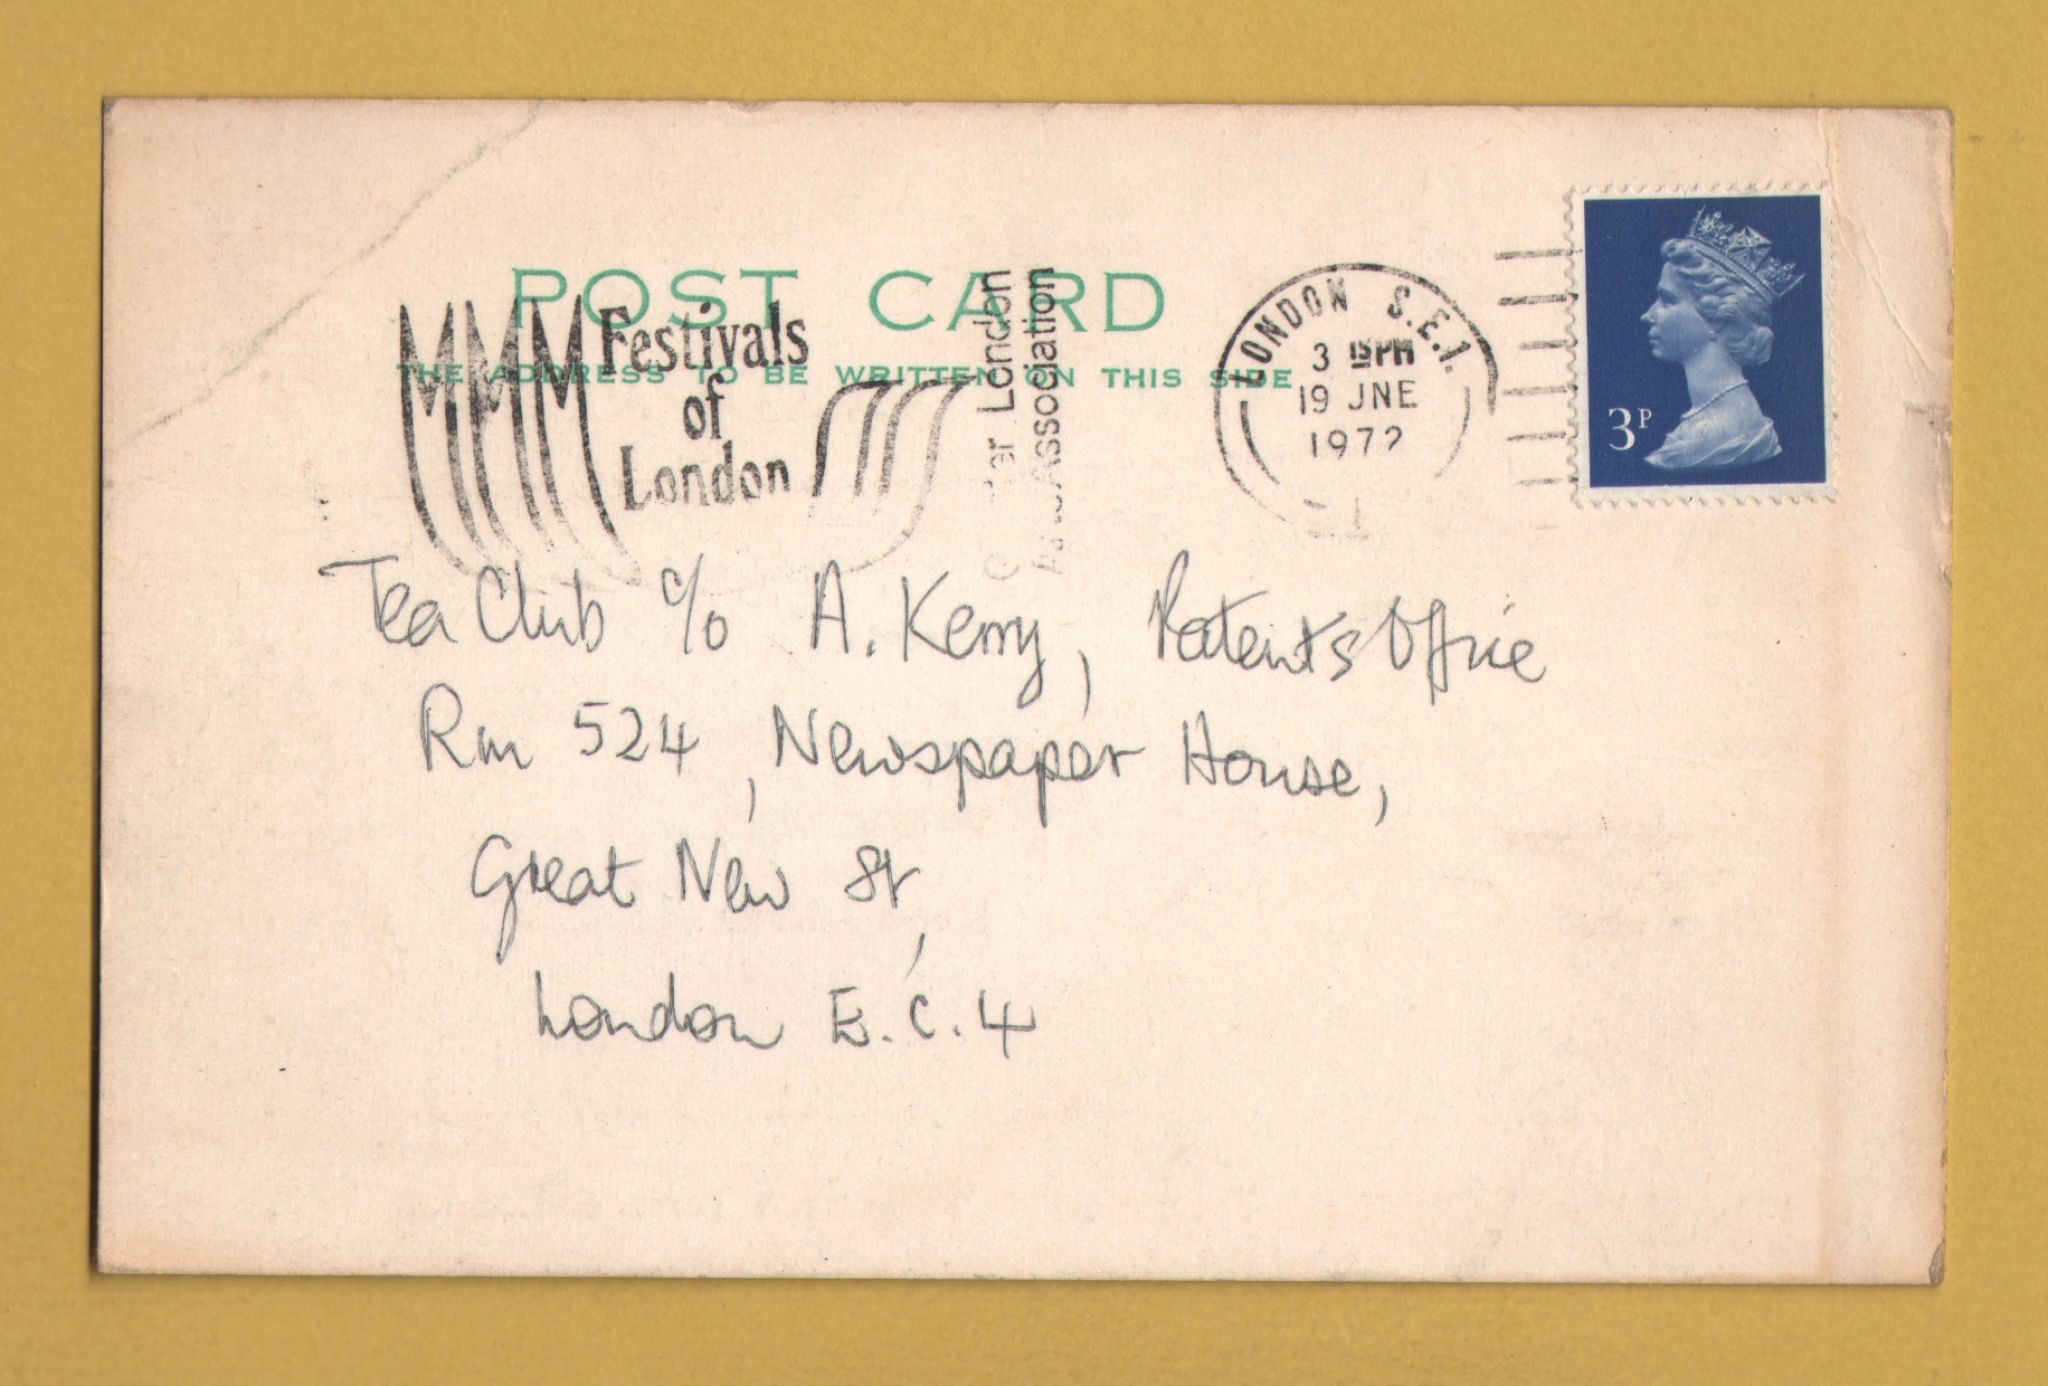 POST CARD
THE ADDRESS TO BE WRITTEN ON THIS SIDE
Festivals
of
London
London
Association
LONDON S.E.1.
3 15 PM
19 JNE
1972
3P
Tea Club c/o A. Kerry, Patents Office
Rm 524, Newspaper House,
Great New St,
London E.C.4